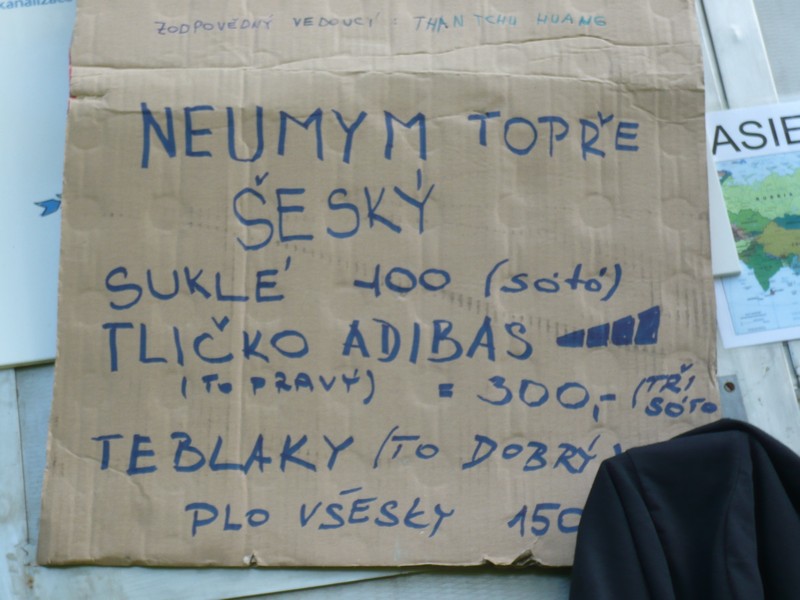 kanalizace
ZODPOVĚDNÝ VEDOUCÝ = THAN TCHU HUANG
NEUMYM TOPŘE
ŠESKÝ
SUKLÉ 100 (sótó)
TLIČKO ADIBAS
(TO PRAVÝ) = 300,- (TŘI
SÓTO
TEBLAKY (TO DOBRÝ
PLO VŠESKY 150
ASIE
RUSSIA